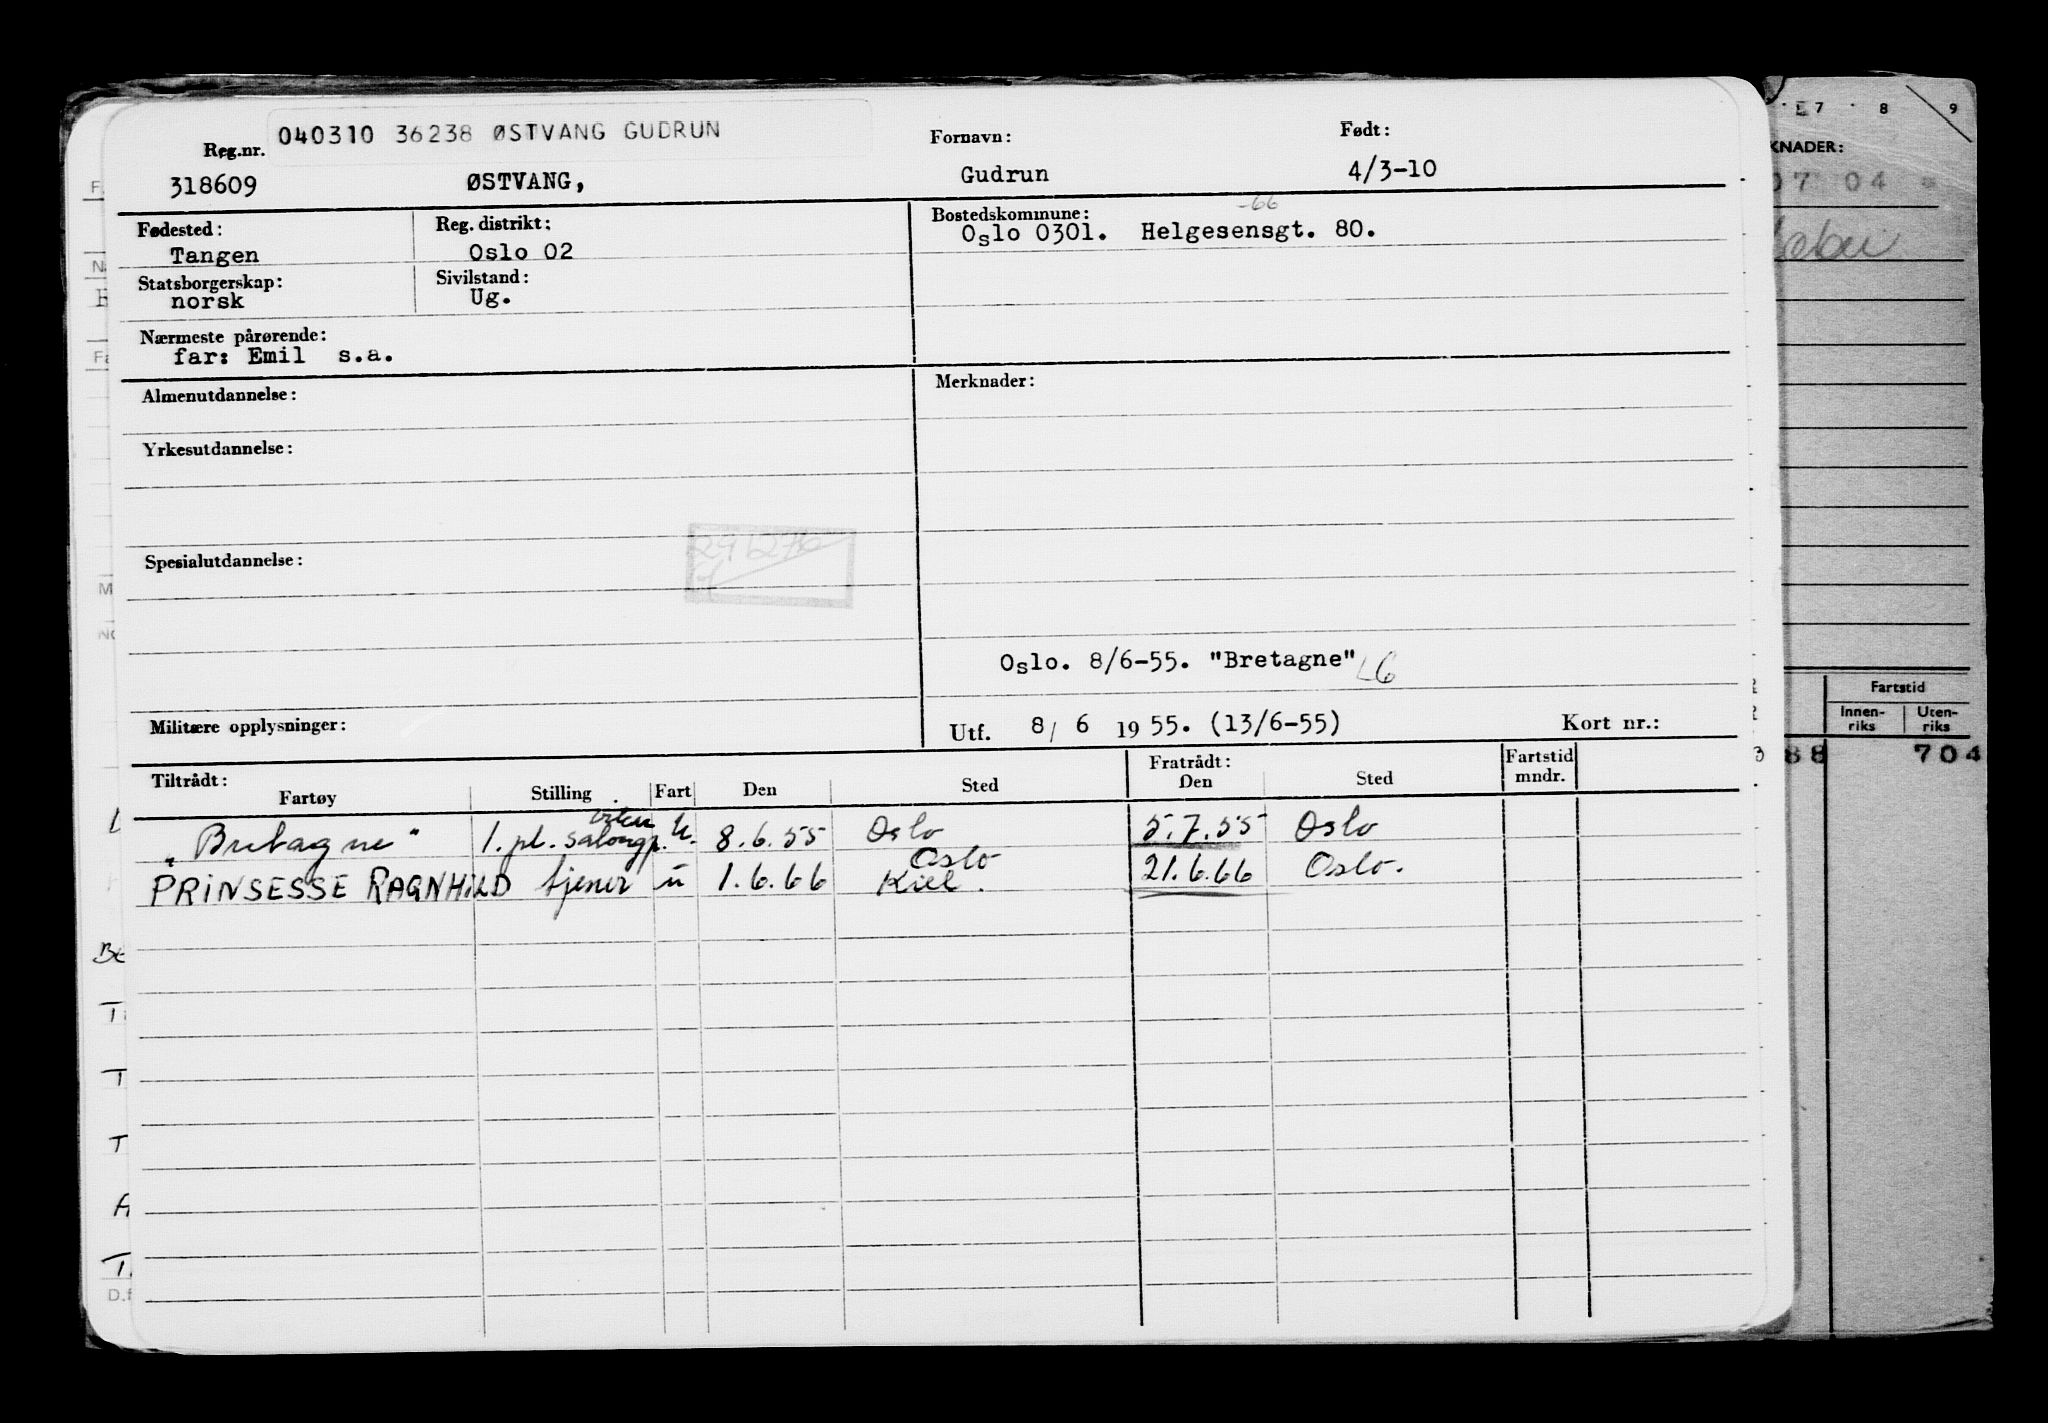 040310 36238 ØSTVANG GUDRUN
Reg.nr. Fornavn: Født:
318609 ØSTVANG, Gudrun 4/3-10
Fødested: Reg. distrikt: Bostedskommune: -66
Tangen Oslo 02 Oslo 0301. Helgesensgt. 80.
Statsborgerskap: Sivilstand:
norsk Ug.
Nærmeste pårørende:
far: Emil s.a.
Almenutdannelse: Merknader:
Yrkesutdannelse:
Spesialutdannelse:
Oslo. 8/6-55. "Bretagne"
Militære opplysninger: Utf. 8/ 6 1955. (13/6-55) Kort nr.:
Tiltrådt: Fratrådt: Fartstid
Fartøy Stilling Fart Den Sted Den Sted mndr.
"Bretagne" 1. pl. salongp. U. 8.6.55 Oslo 5.7.55 Oslo
Oslo
PRINSESSE RAGNHILD tjener u 1.6.66 Kiel. 21.6.66 Oslo.
7 8 9
KNADER:
07 04
Fartstid
Innen-riks Uten-riks
88 704